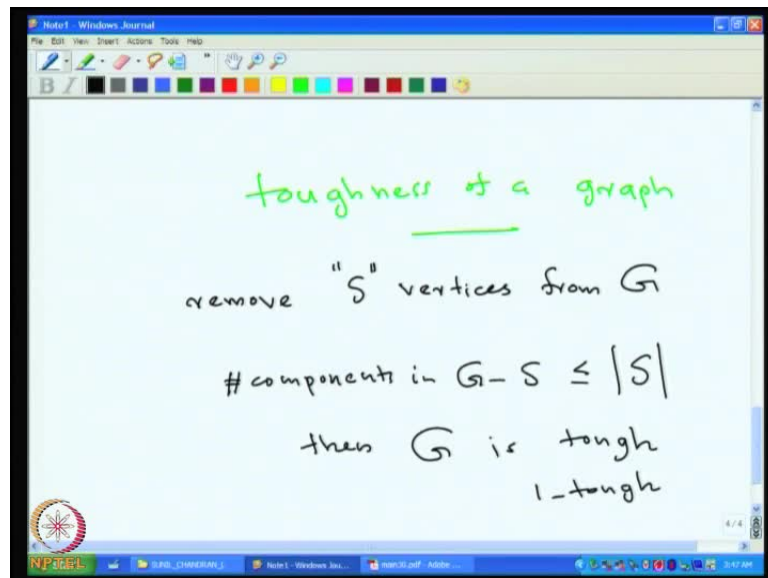 Note1 - Windows Journal
File Edit View Insert Actions Tools Help
B I
toughness of a graph
remove "S" vertices from G
# components in G - S ≤ |S|
then G is tough
1-tough
4/4
NPTEL
SUNIL_CHANDRAN_L
Note1 - Windows Jou...
main30.pdf - Adobe ...
3:47 AM